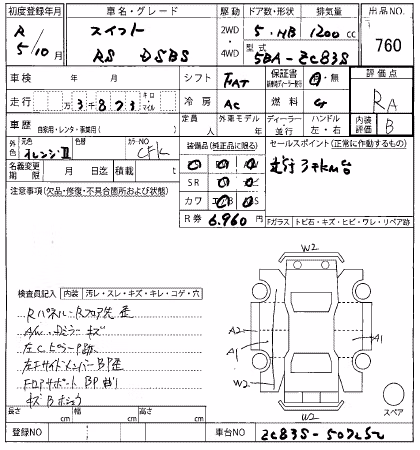 初度登録年月 車名・グレード 駆動 ドア数・形状 排気量 出品NO.
R 5/10月 スイフト 2WD 5・HB 1200cc 760
RS DSBS 4WD 型式 5BA-ZC83S
車検 年 月 シフト FAT 保証書 有・無 評価点
走行 万3千873 キロ マイル 冷房 AC 燃料 G RA
車歴 自家用・レンタ・事業用( ) 定員 人 外車モデル 年 ディーラー・並行 ハンドル 左・右 内装評価 B
外色 元色 オレンジⅡ カラーNO CFK 装備品(純正品に限る) セールスポイント(正常に作動するもの)
名義変更期限 月 日迄 積載 t SR 走行3千km台
注意事項(欠品・修復・不具合箇所および状態) カワ
R券 6,960円 Fガラス トビ石・キズ・ヒビ・ワレ・リペア跡
W2
検査員記入 内装 汚レ・スレ・キズ・キレ・コゲ・穴
Rパネル・Rフロア先歪
A/W・Dミラーキズ A2 A1
左Cピラー P跡 A1
左Fサイドメンバー BP歪
FロアサポートBP曲り W2
キズBホシュウ
長さ cm 幅 cm 高さ cm W2 スペア
登録NO 車台NO ZC83S-507252